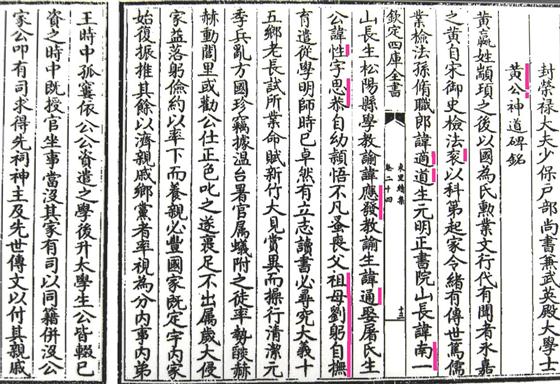 封榮祿大夫少保戶部尚書兼武英殿大學士
黄公神道碑銘
黄嬴姓顓頊之後以國為氏勲業文行代有聞者永嘉
之黄自宋御史檢法衮以科第起家令緒有傳世篤儒
業檢法孫脩職郎諱適道生元明正書院山長諱南一
欽定四庫全書
東里續集
卷二十四
十三
山長生松陽縣學教諭諱應發教諭生諱通娶屠氏生
公諱性字思恭自幼穎悟不凡蚤喪父祖母劉躬自撫
育遣從學明師時已卓然有立志讀書必尋究大義十
五鄉老長試所業命賦新竹大見賞異而操行清潔元
季兵亂方國珍竊據温台署官属蟻附之徒率勢燄赫
赫動閭里或勸公仕正色叱之遂裹足不出属歲大侵
家益落躬儉約以率下而養親必豐國家既定宇内家
始復振推其餘以濟親戚鄉黨者率視為分内事内弟
王時中孤寠依公公資遣之學後升太學生公皆輟已
資之時中既授官坐事當没其家有司以同籍併没公
家公叩有司求得先祠神主及先世傳文以付其親戚